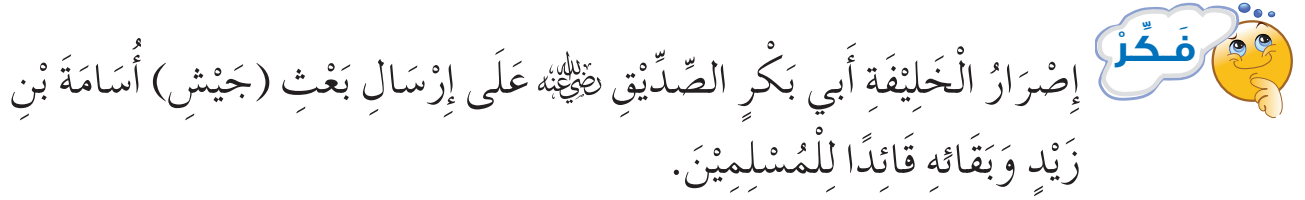 فَـكِّرْ
إِصْرَارُ الْخَلِيْفَةِ أَبي بَكْرٍ الصِّدِّيْقِ رضي الله عنه عَلَى إِرْسَالِ بَعْثِ (جَيْشِ) أُسَامَةَ بْنِ
زَيْدٍ وَبَقَائهِ قَائِدًا لِلْمُسْلِمِيْنَ.